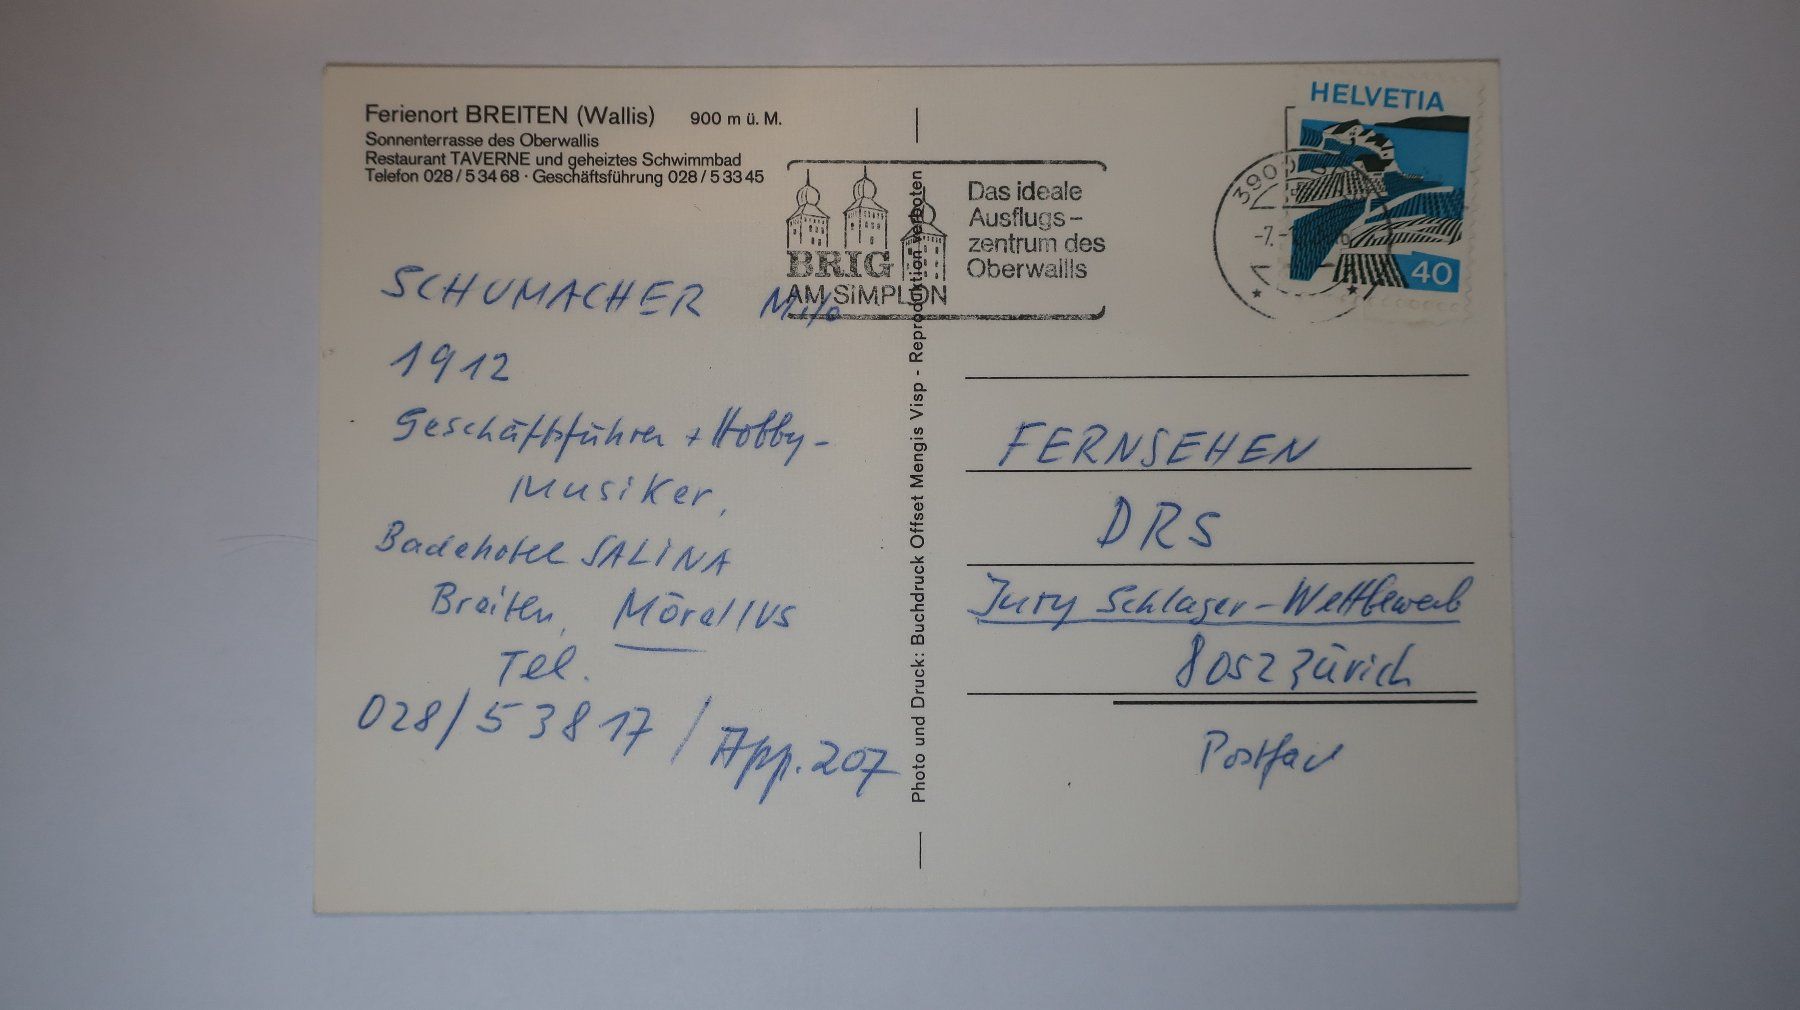 Ferienort BREITEN (Wallis) 900 m ü. M.
Sonnenterrasse des Oberwallis
Restaurant TAVERNE und geheiztes Schwimmbad
Telefon 028 / 5 34 68 · Geschäftsführung 028 / 5 33 45
SCHUMACHER Milo
1912
Geschäftsführer + Hobby-
Musiker,
Badehotel SALINA
Breiten, Mörel/VS
Tel.
028/53817 / App. 207
Photo und Druck: Buchdruck Offset Mengis Visp - Reproduktion verboten
BRIG
AM SIMPLON
Das ideale
Ausflugs-
zentrum des
Oberwallis
HELVETIA
40
3900
-7.-
FERNSEHEN
DRS
Jury Schlager-Wettbewerb
8052 Zürich
Postfach